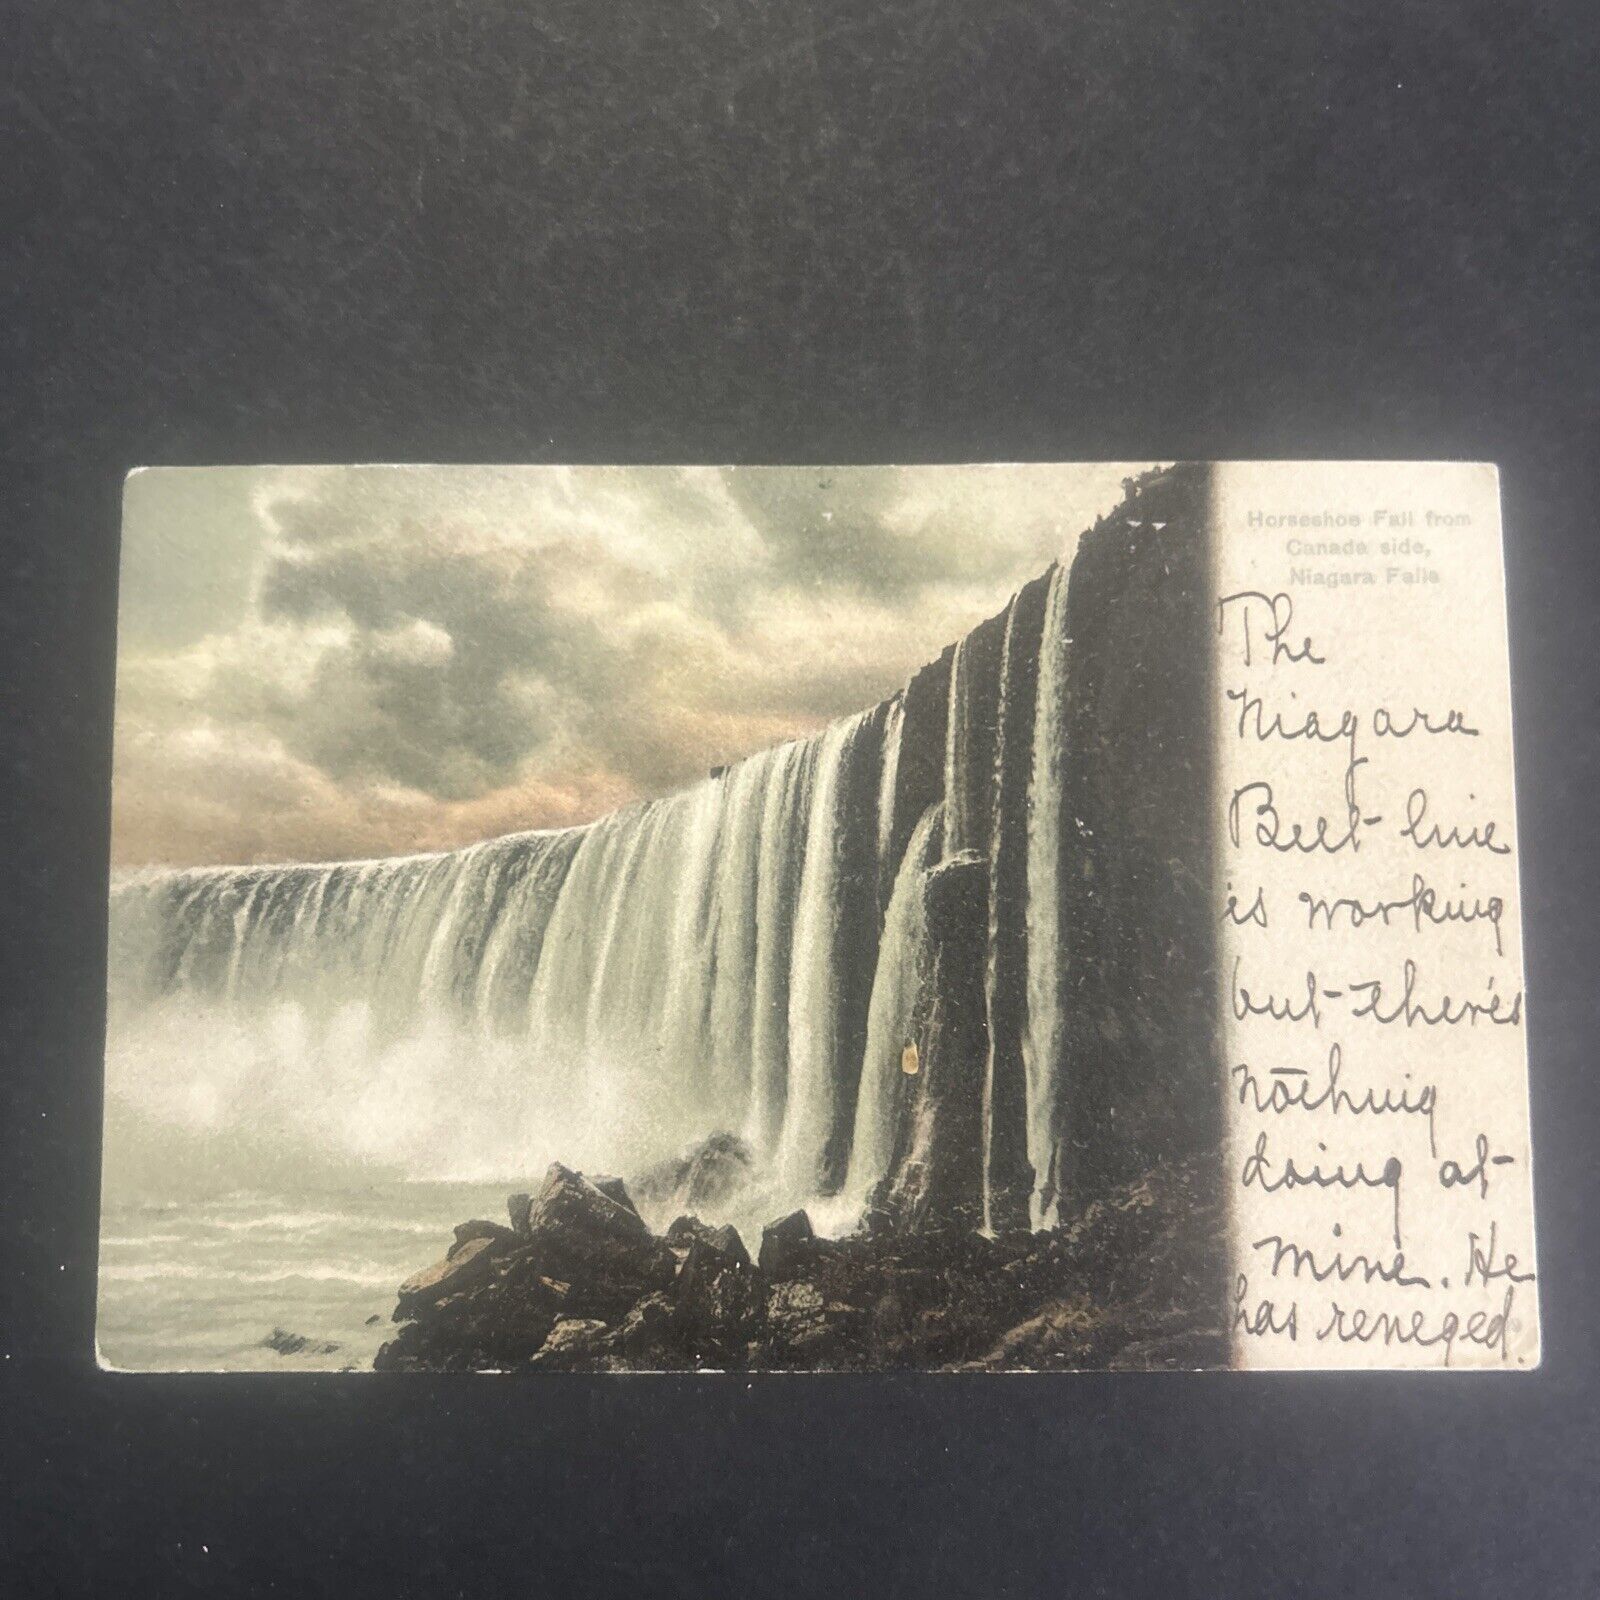 Horseshoe Fall from
Canada side,
Niagara Falls
The
Niagara
Beet-line
is working
but there's
nothing
doing at
mine. He
has reneged.